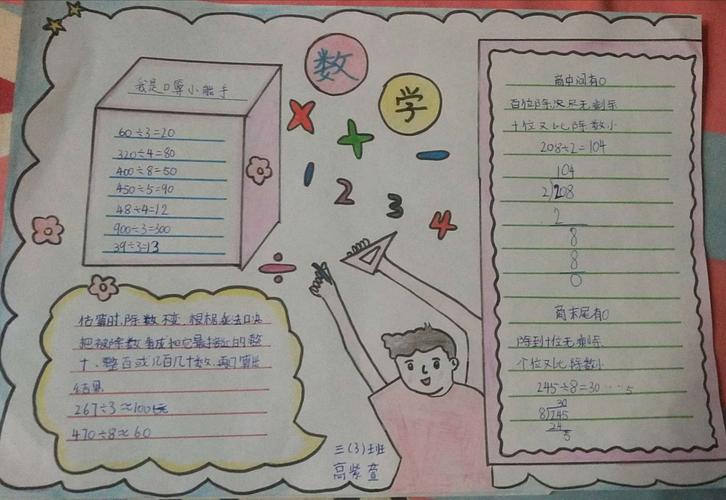 数
学
我是口算小能手
60÷3=20
320÷4=80
400÷8=50
450÷5=90
48÷4=12
900÷3=300
39÷3=13
× + -
1 2 3 4
÷
估算时,除数不变,根据乘法口决
把被除数看成和它最接近的整
十、整百或几百几十数,再口算出
结果
267÷3≈100
470÷8≈60
三(3)班
高紫萱
商中间有0
百位除
十位又比除数小
208÷2=104
104
2208
2
8
8
0
商末尾有0
除到十位无剩余
个位又比除数小
245÷8=30……5
30
8245
24
5